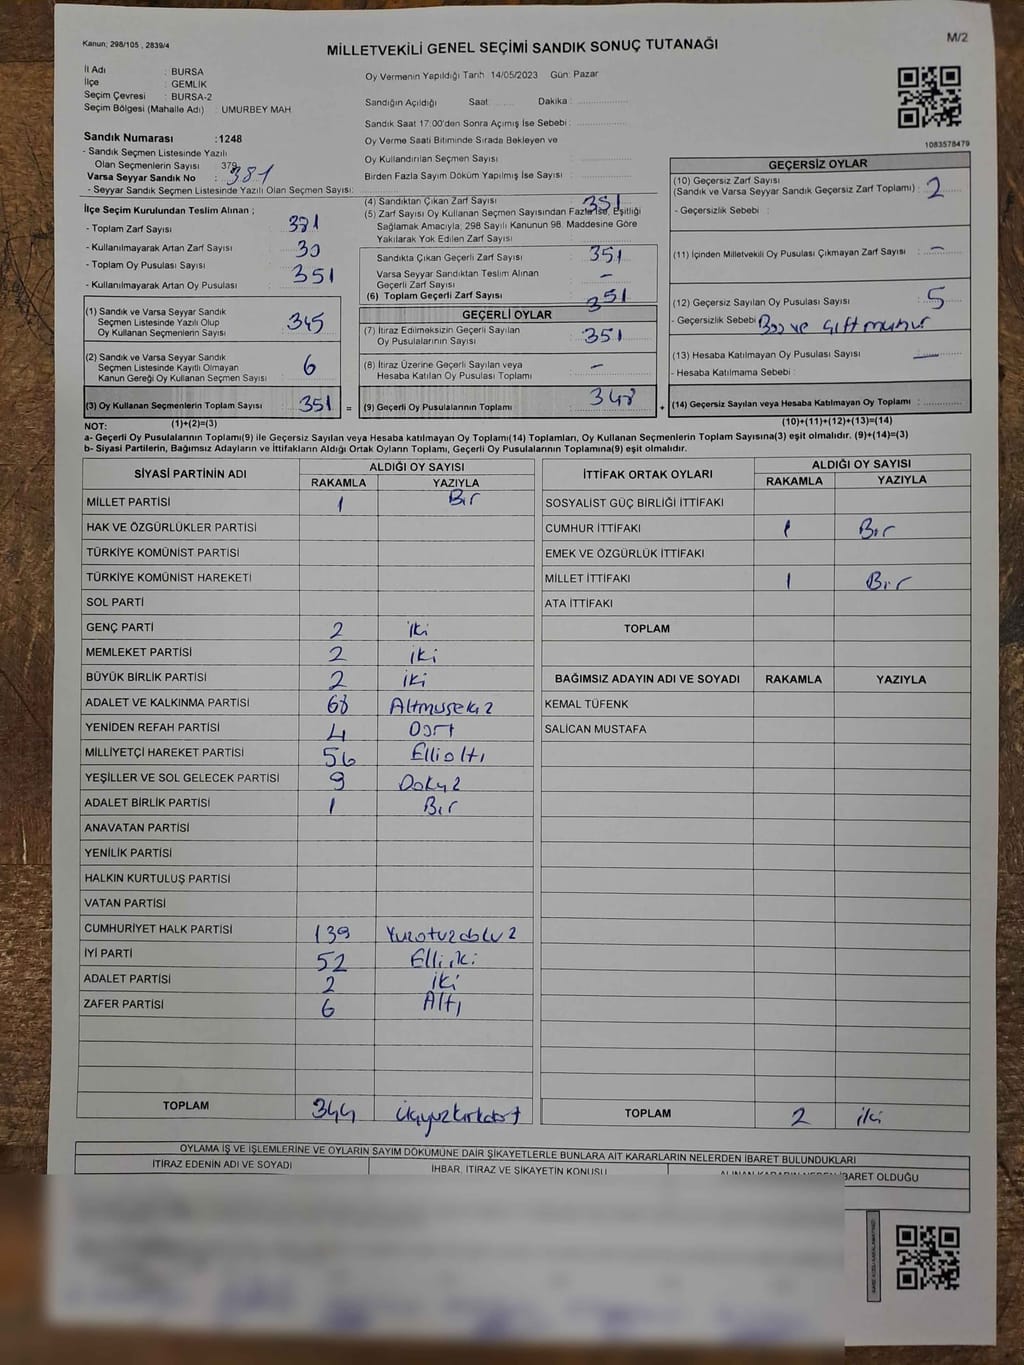 Kanun; 298/105 , 2839/4
M/2
MİLLETVEKİLİ GENEL SEÇİMİ SANDIK SONUÇ TUTANAĞI
İl Adı : BURSA
İlçe : GEMLİK
Seçim Çevresi : BURSA-2
Seçim Bölgesi (Mahalle Adı) : UMURBEY MAH
Sandık Numarası : 1248
- Sandık Seçmen Listesinde Yazılı
Olan Seçmenlerin Sayısı : 379
Varsa Seyyar Sandık No : 381
- Seyyar Sandık Seçmen Listesinde Yazılı Olan Seçmen Sayısı:
Oy Vermenin Yapıldığı Tarih 14/05/2023 Gün: Pazar
Sandığın Açıldığı Saat: Dakika :
Sandık Saat 17:00'den Sonra Açımış İse Sebebi :
Oy Verme Saati Bitiminde Sırada Bekleyen ve
Oy Kullandırılan Seçmen Sayısı :
Birden Fazla Sayım Döküm Yapılmış İse Sayısı :
1083578479
İlçe Seçim Kurulundan Teslim Alınan ;
- Toplam Zarf Sayısı : 381
- Kullanılmayarak Artan Zarf Sayısı : 30
- Toplam Oy Pusulası Sayısı : 351
- Kullanılmayarak Artan Oy Pusulası
(1) Sandık ve Varsa Seyyar Sandık
Seçmen Listesinde Yazılı Olup
Oy Kullanan Seçmenlerin Sayısı : 345
(2) Sandık ve Varsa Seyyar Sandık
Seçmen Listesinde Kayıtlı Olmayan
Kanun Gereği Oy Kullanan Seçmen Sayısı : 6
(3) Oy Kullanan Seçmenlerin Toplam Sayısı : 351 =
(4) Sandıktan Çıkan Zarf Sayısı : 351
(5) Zarf Sayısı Oy Kullanan Seçmen Sayısından Fazla İse, Eşitliği
Sağlamak Amacıyla, 298 Sayılı Kanunun 98. Maddesine Göre
Yakılarak Yok Edilen Zarf Sayısı :
Sandıkta Çıkan Geçerli Zarf Sayısı : 351
Varsa Seyyar Sandıktan Teslim Alınan
Geçerli Zarf Sayısı : –
(6) Toplam Geçerli Zarf Sayısı : 351
GEÇERLİ OYLAR
(7) İtiraz Edilmeksizin Geçerli Sayılan
Oy Pusulalarının Sayısı : 351
(8) İtiraz Üzerine Geçerli Sayılan veya
Hesaba Katılan Oy Pusulası Toplamı : –
(9) Geçerli Oy Pusulalarının Toplamı : 348 +
GEÇERSİZ OYLAR
(10) Geçersiz Zarf Sayısı
(Sandık ve Varsa Seyyar Sandık Geçersiz Zarf Toplamı) : 2
- Geçersizlik Sebebi :
(11) İçinden Milletvekili Oy Pusulası Çıkmayan Zarf Sayısı : –
(12) Geçersiz Sayılan Oy Pusulası Sayısı : 5
- Geçersizlik Sebebi : Boş ve çift mühür
(13) Hesaba Katılmayan Oy Pusulası Sayısı : —
- Hesaba Katılmama Sebebi :
(14) Geçersiz Sayılan veya Hesaba Katılmayan Oy Toplamı :
NOT: (1)+(2)=(3)
(10)+(11)+(12)+(13)=(14)
a- Geçerli Oy Pusulalarının Toplamı(9) ile Geçersiz Sayılan veya Hesaba katılmayan Oy Toplamı(14) Toplamları, Oy Kullanan Seçmenlerin Toplam Sayısına(3) eşit olmalıdır. (9)+(14)=(3)
b- Siyasi Partilerin, Bağımsız Adayların ve İttifakların Aldığı Ortak Oyların Toplamı, Geçerli Oy Pusulalarının Toplamına(9) eşit olmalıdır.
SİYASİ PARTİNİN ADI ALDIĞI OY SAYISI
RAKAMLA YAZIYLA
MİLLET PARTİSİ 1 Bir
HAK VE ÖZGÜRLÜKLER PARTİSİ
TÜRKİYE KOMÜNİST PARTİSİ
TÜRKİYE KOMÜNİST HAREKETİ
SOL PARTİ
GENÇ PARTİ 2 iki
MEMLEKET PARTİSİ 2 iki
BÜYÜK BİRLİK PARTİSİ 2 iki
ADALET VE KALKINMA PARTİSİ 68 Altmışsekiz
YENİDEN REFAH PARTİSİ 4 Dört
MİLLİYETÇİ HAREKET PARTİSİ 56 Ellialtı
YEŞİLLER VE SOL GELECEK PARTİSİ 9 Dokuz
ADALET BİRLİK PARTİSİ 1 Bir
ANAVATAN PARTİSİ
YENİLİK PARTİSİ
HALKIN KURTULUŞ PARTİSİ
VATAN PARTİSİ
CUMHURİYET HALK PARTİSİ 139 Yüzotuzdokuz
İYİ PARTİ 52 Elliiki
ADALET PARTİSİ 2 iki
ZAFER PARTİSİ 6 Altı
TOPLAM 344 üçyüzkırkdört
İTTİFAK ORTAK OYLARI ALDIĞI OY SAYISI
RAKAMLA YAZIYLA
SOSYALİST GÜÇ BİRLİĞİ İTTİFAKI
CUMHUR İTTİFAKI 1 Bir
EMEK VE ÖZGÜRLÜK İTTİFAKI
MİLLET İTTİFAKI 1 Bir
ATA İTTİFAKI
TOPLAM
BAĞIMSIZ ADAYIN ADI VE SOYADI RAKAMLA YAZIYLA
KEMAL TÜFENK
SALİCAN MUSTAFA
TOPLAM 2 iki
OYLAMA İŞ VE İŞLEMLERİNE VE OYLARIN SAYIM DÖKÜMÜNE DAİR ŞİKAYETLERLE BUNLARA AİT KARARLARIN NELERDEN İBARET BULUNDUKLARI
İTİRAZ EDENİN ADI VE SOYADI İHBAR, İTİRAZ VE ŞİKAYETİN KONUSU ALINAN KARARIN NEDEN İBARET OLDUĞU